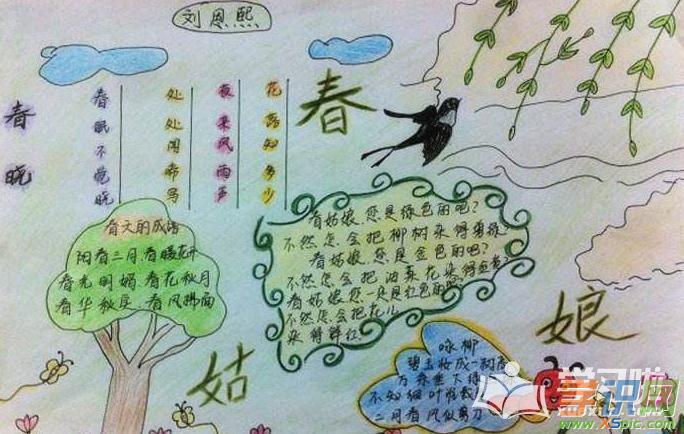 刘恩熙
春晓
春眠不觉晓
处处闻啼鸟
夜来风雨声
花落知多少
春
姑
娘
春天的成语
阳春三月 春暖花开
春光明媚 春花秋月
春华秋实 春风拂面
春姑娘您是绿色的吧？
不然怎会把柳树染得
春姑娘您是金色的吧？
不然怎会把油菜花染得
春姑娘您一定是红色的
不然怎会把花儿
染得鲜红
咏柳
碧玉妆成一树高
万条垂下
不知细叶谁裁
二月春风似剪刀
学习啦
学识网
www.XSpic.com